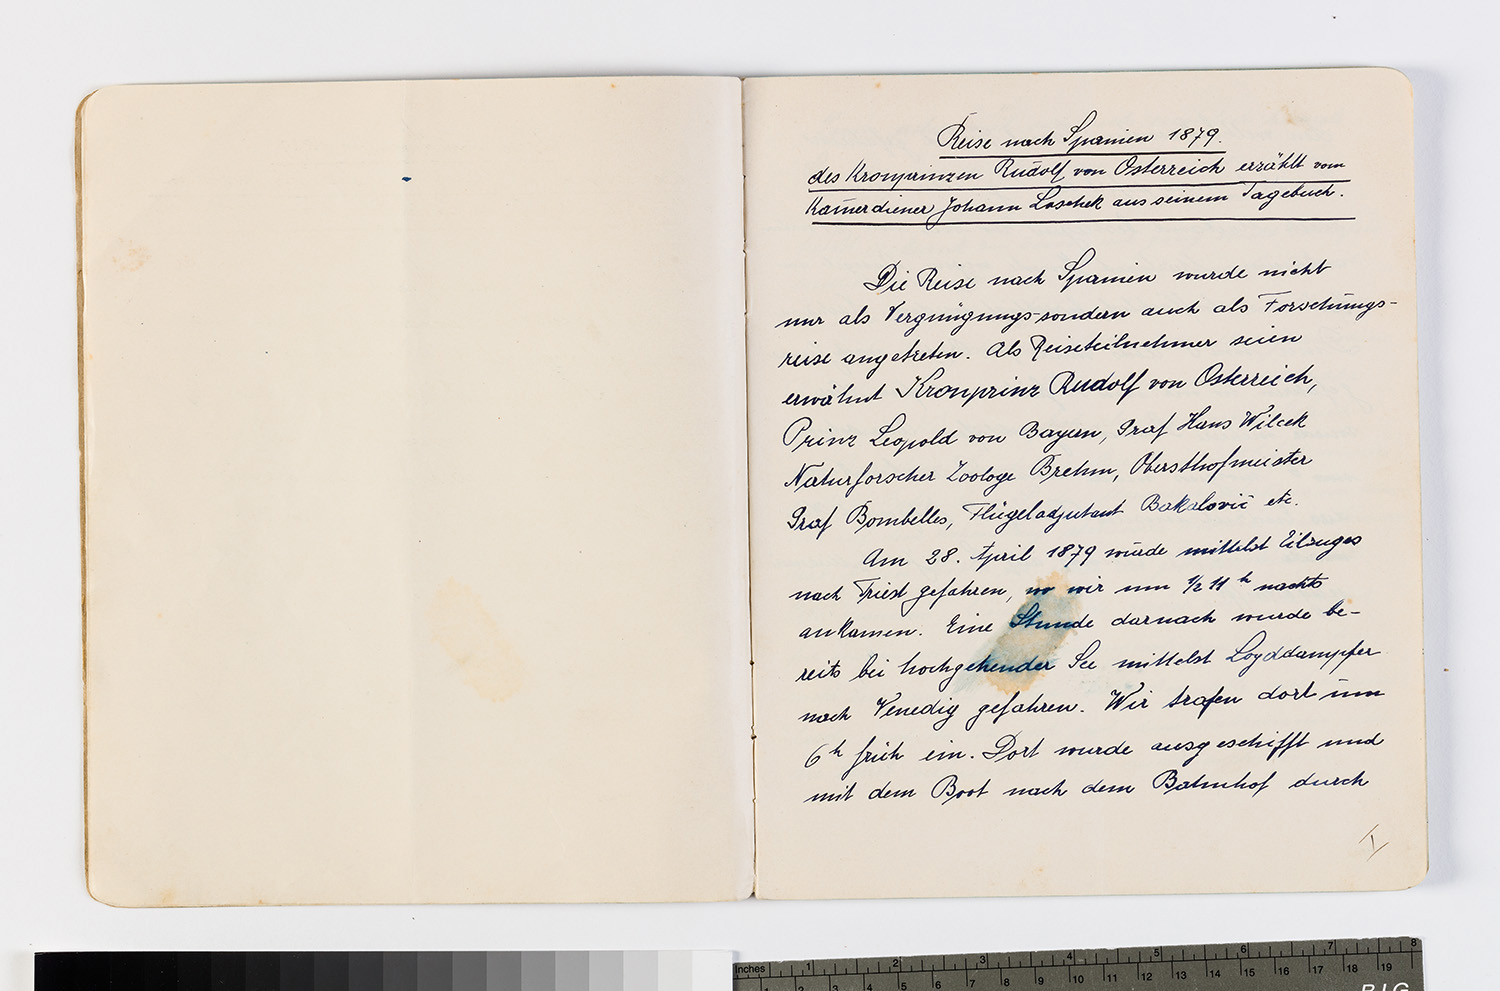 Reise nach Spanien 1879.
des Kronprinzen Rudolf von Österreich erzählt vom
Kamerdiener Johann Loschek aus seinem Tagebuch.
Die Reise nach Spanien wurde nicht
nur als Vergnügungs-sondern auch als Forschungs-
reise angetreten. Als Reiseteilnehmer seien
erwähnt Kronprinz Rudolf von Österreich,
Prinz Leopold von Bayern, Graf Hans Wilcek
Naturforscher Zoologe Brehm, Obersthofmeister
Graf Bombelles, Flügeladjutant Bakalovič etc.
Am 28. April 1879 wurde mittelst Eilzuges
nach Triest gefahren, wo wir um 1/2 11 h nachts
ankamen. Eine Stunde darnach wurde be-
reits bei hochgehender See mittelst Loyddampfer
nach Venedig gefahren. Wir trafen dort um
6 h früh ein. Dort wurde ausgeschifft und
mit dem Boot nach dem Bahnhof durch
I
Inches 1 2 3 4 5 6 7 8
1 2 3 4 5 6 7 8 9 10 11 12 13 14 15 16 17 18 19